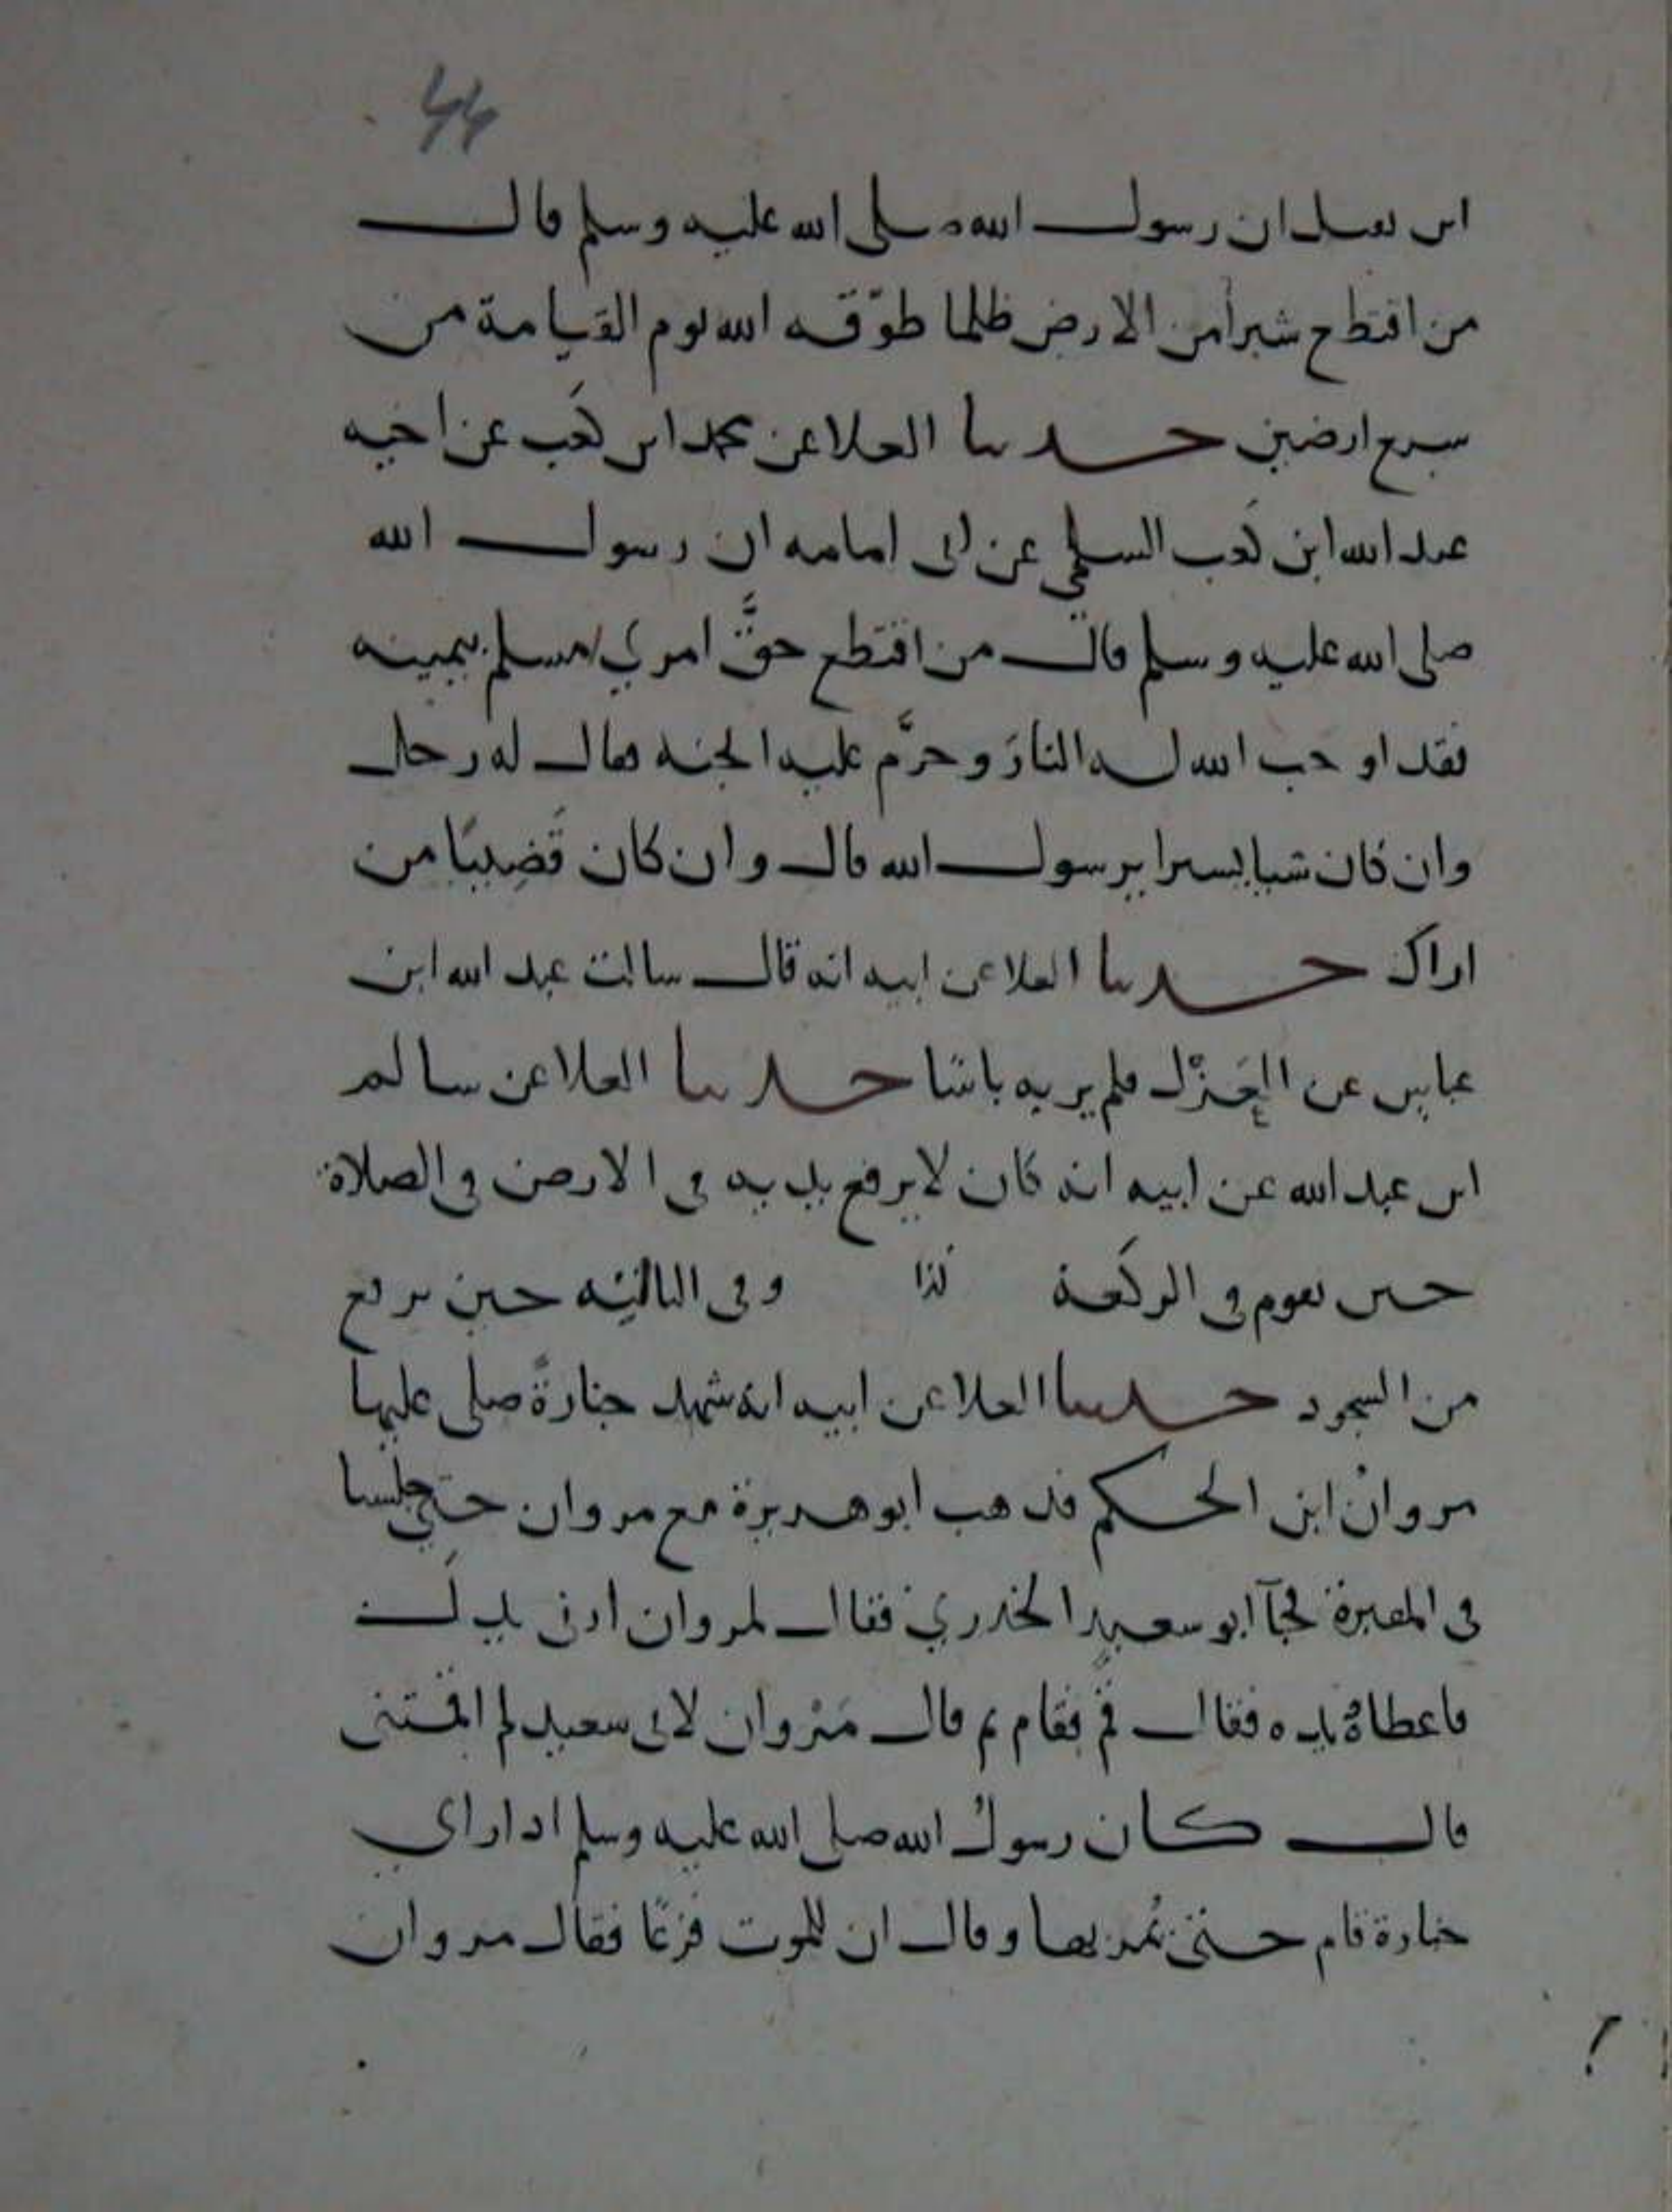 44
ابن نفيل ان رسول الله صلى الله عليه وسلم قال
من اقتطع شبرا من الارض ظلما طوّقه الله يوم القيامة من
سبع ارضين حدثنا العلا عن محمد ابن كعب عن اخيه
عبد الله ابن كعب السلمي عن ابى امامه ان رسول الله
صلى الله عليه وسلم قال من اقتطع حقَّ امري مسلم بيمينه
فقد اوجب الله له النارَ وحرَّم عليه الجنه فقال له رجل
وان كان شيا يسيرا يرسول الله قال وان كان قَضِيبًا من
اراك حدثنا العلا عن ابيه انه قال سالت عبد الله ابن
عباس عن العَزْل فلم ير به باسًا حدثنا العلا عن سالم
ابن عبد الله عن ابيه انه كان لا يرفع يديه فى الارض فى الصلاة
حين يقوم فى الركعة كذا وفى الثانيه حين يرفع
من السجود حدثنا العلا عن ابيه انه شهد جنازةً صلى عليها
مروانْ ابن الحكم فذهب ابو هريرة مع مروان حتى جلسا
فى المقبرة فجآ ابو سعيد الخدري فقال لمروان ارنى يدكَ
فاعطاهُ يده فقال قُم فقام ثم قال مَرْوان لابى سعيد لم اقمتنى
قال كان رسولُ الله صلى الله عليه وسلم اذا راي
جنازة قام حتى تُمر بها وقال ان للموت فزعًا فقال مروان